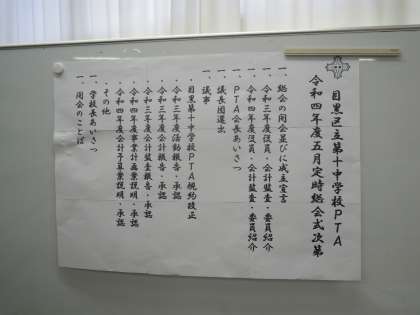 目黒区立第十中学校PTA
令和四年度五月定時総会式次第
一、総会の開会並びに成立宣言
一、令和三年度役員・会計監査・委員紹介
一、令和四年度役員・会計監査・委員紹介
一、PTA会長あいさつ
一、議長団選出
一、議事
・目黒第十中学校PTA規約改正
・令和三年度活動報告・承認
・令和三年度会計報告・承認
・令和三年度会計監査報告・承認
・令和四年度事業計画案説明・承認
・令和四年度会計予算案説明・承認
・その他
一、学校長あいさつ
一、閉会のことば